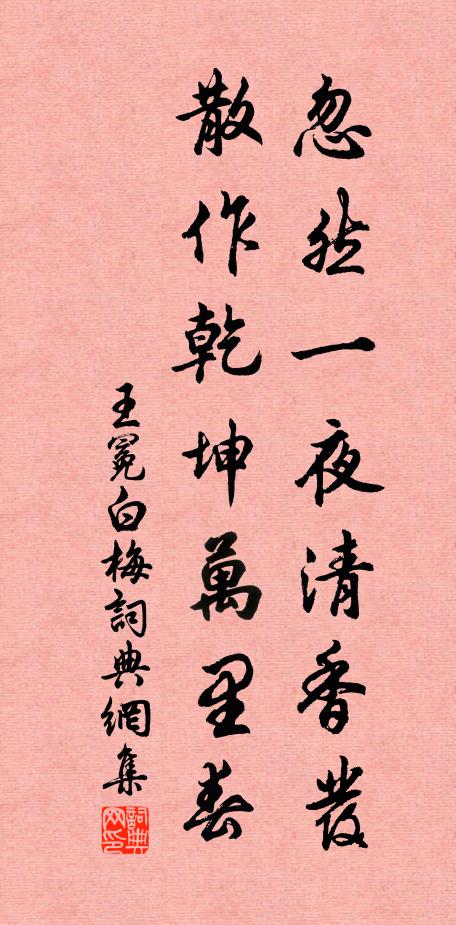 忽然一夜清香發
散作乾坤萬里春
王冕白梅詞典網集
詞典网印